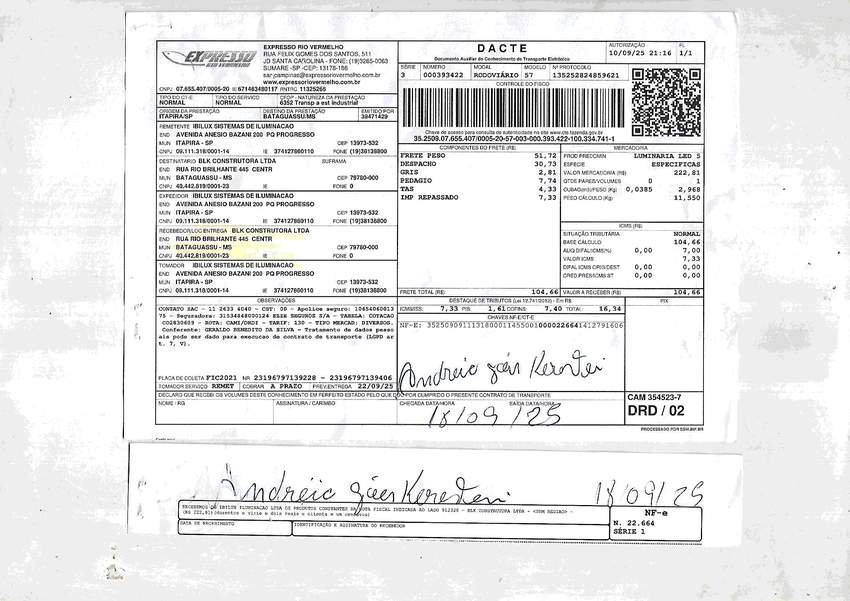 EXPRESSO
RIO VERMELHO
EXPRESSO RIO VERMELHO
RUA FELIX GOMES DOS SANTOS, 511
JD SANTA CAROLINA - FONE: (19)3265-0063
SUMARE -SP -CEP: 13178-186
sar.campinas@expressoriovermelho.com.br
www.expressoriovermelho.com.br
CNPJ 07.655.407/0005-20 IE 671463480117 RNTRC 11325265
DACTE
Documento Auxiliar do Conhecimento de Transporte Eletrônico
AUTORIZAÇÃO
10/09/25 21:16
FL
1/1
SÉRIE NÚMERO MODAL MODELO Nº PROTOCOLO
3 000393422 RODOVIÁRIO 57 135252824859621
CONTROLE DO FISCO
Chave de acesso para consulta de autenticidade no site www.cte.fazenda.gov.br
35.2509.07.655.407/0005-20-57-003-000.393.422-100.334.741-1
TIPO DO CT-E TIPO DO SERVIÇO CFOP - NATUREZA DA PRESTAÇÃO
NORMAL NORMAL 6352 Transp a est industrial
ORIGEM DA PRESTAÇÃO DESTINO DA PRESTAÇÃO EMITIDO POR
ITAPIRA/SP BATAGUASSU/MS 38471429
REMETENTE IBILUX SISTEMAS DE ILUMINACAO
END AVENIDA ANESIO BAZANI 200 PQ PROGRESSO
MUN ITAPIRA - SP CEP 13973-532
CNPJ 09.111.318/0001-14 IE 374127860110 FONE (19)38138800
DESTINATARIO BLK CONSTRUTORA LTDA SUFRAMA
END RUA RIO BRILHANTE 445 CENTR
MUN BATAGUASSU - MS CEP 79780-000
CNPJ 40.442.819/0001-23 IE FONE 0
EXPEDIDOR IBILUX SISTEMAS DE ILUMINACAO
END AVENIDA ANESIO BAZANI 200 PQ PROGRESSO
MUN ITAPIRA - SP CEP 13973-532
CNPJ 09.111.318/0001-14 IE 374127860110 FONE (19)38138800
RECEBEDOR/LOC ENTREGA BLK CONSTRUTORA LTDA
END RUA RIO BRILHANTE 445 CENTR
MUN BATAGUASSU - MS CEP 79780-000
CNPJ 40.442.819/0001-23 IE FONE 0
TOMADOR IBILUX SISTEMAS DE ILUMINACAO
END AVENIDA ANESIO BAZANI 200 PQ PROGRESSO
MUN ITAPIRA - SP CEP 13973-532
CNPJ 09.111.318/0001-14 IE 374127860110 FONE (19)38138800
COMPONENTES DO FRETE (R$)
FRETE PESO 51,72
DESPACHO 30,73
GRIS 2,81
PEDAGIO 7,74
TAS 4,33
IMP REPASSADO 7,33
FRETE TOTAL (R$) 104,66
MERCADORIA
PROD PREDOMIN LUMINARIA LED S
ESPÉCIE ESPECIFICAS
VALOR MERCADORIA (R$) 222,81
QTDE PARES/VOLUMES 0 1
CUBAGem/PESO (Kg) 0,0385 2,968
PESO CÁLCULO (Kg) 11,550
ICMS (R$)
SITUAÇÃO TRIBUTÁRIA NORMAL
BASE CÁLCULO 104,66
ALIQ DIFAL/ICMS(%) 0,00 7,00
VALOR ICMS 7,33
DIFAL ICMS ORIG/DEST 0,00 0,00
CRED.PRES/ICMS ST 0,00 0,00
VALOR A RECEBER (R$) 104,66
OBSERVAÇÕES
CONTATO SAC - 11 2633 4040 - CST: 00 - Apolice seguro: 10654060813
75 - Seguradora: 31534848000124 ELSE SEGUROS S/A - TABELA: COTACAO
CO2830609 - ROTA: CAMI/DRDI - TARIF: 130 - TIPO MERCAD: DIVERSOS.
Conferente: GERALDO BENEDITO DA SILVA - Tratamento de dados pesso
ais pode ser dado para execucao de contrato de transporte (LGPD ar
t. 7, V).
DESTAQUE DE TRIBUTOS (Lei 12.741/2012) - Em R$.
ICMS/ISS: 7,33 PIS: 1,61 COFINS: 7,40 TOTAL: 16,34
PIX
CHAVES NF-E/CT-E
NF-E: 35250909111318000114550010000226641412791606
PLACA DE COLETA FIC2021 NR 23196797139228 - 23196797139406
TOMADOR SERVIÇO REMET COBRAR A PRAZO PREV.ENTREGA 22/09/25
DECLARO QUE RECEBI OS VOLUMES DESTE CONHECIMENTO EM PERFEITO ESTADO PELO QUE DOU POR CUMPRIDO O PRESENTE CONTRATO DE TRANSPORTE
NOME / RG ASSINATURA / CARIMBO CHEGADA DATA/HORA SAÍDA DATA/HORA
18/09/25
CAM 354523-7
DRD / 02
PROCESSADO POR SSW.INF.BR
18/09/25
DATA DE RECEBIMENTO IDENTIFICAÇÃO E ASSINATURA DO RECEBEDOR
NF-e
N. 22.664
SÉRIE 1